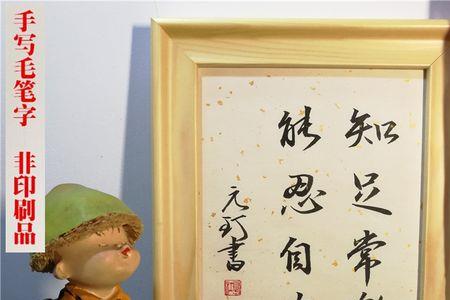 手写毛笔字 非印刷品
知足常
能忍自
元 書